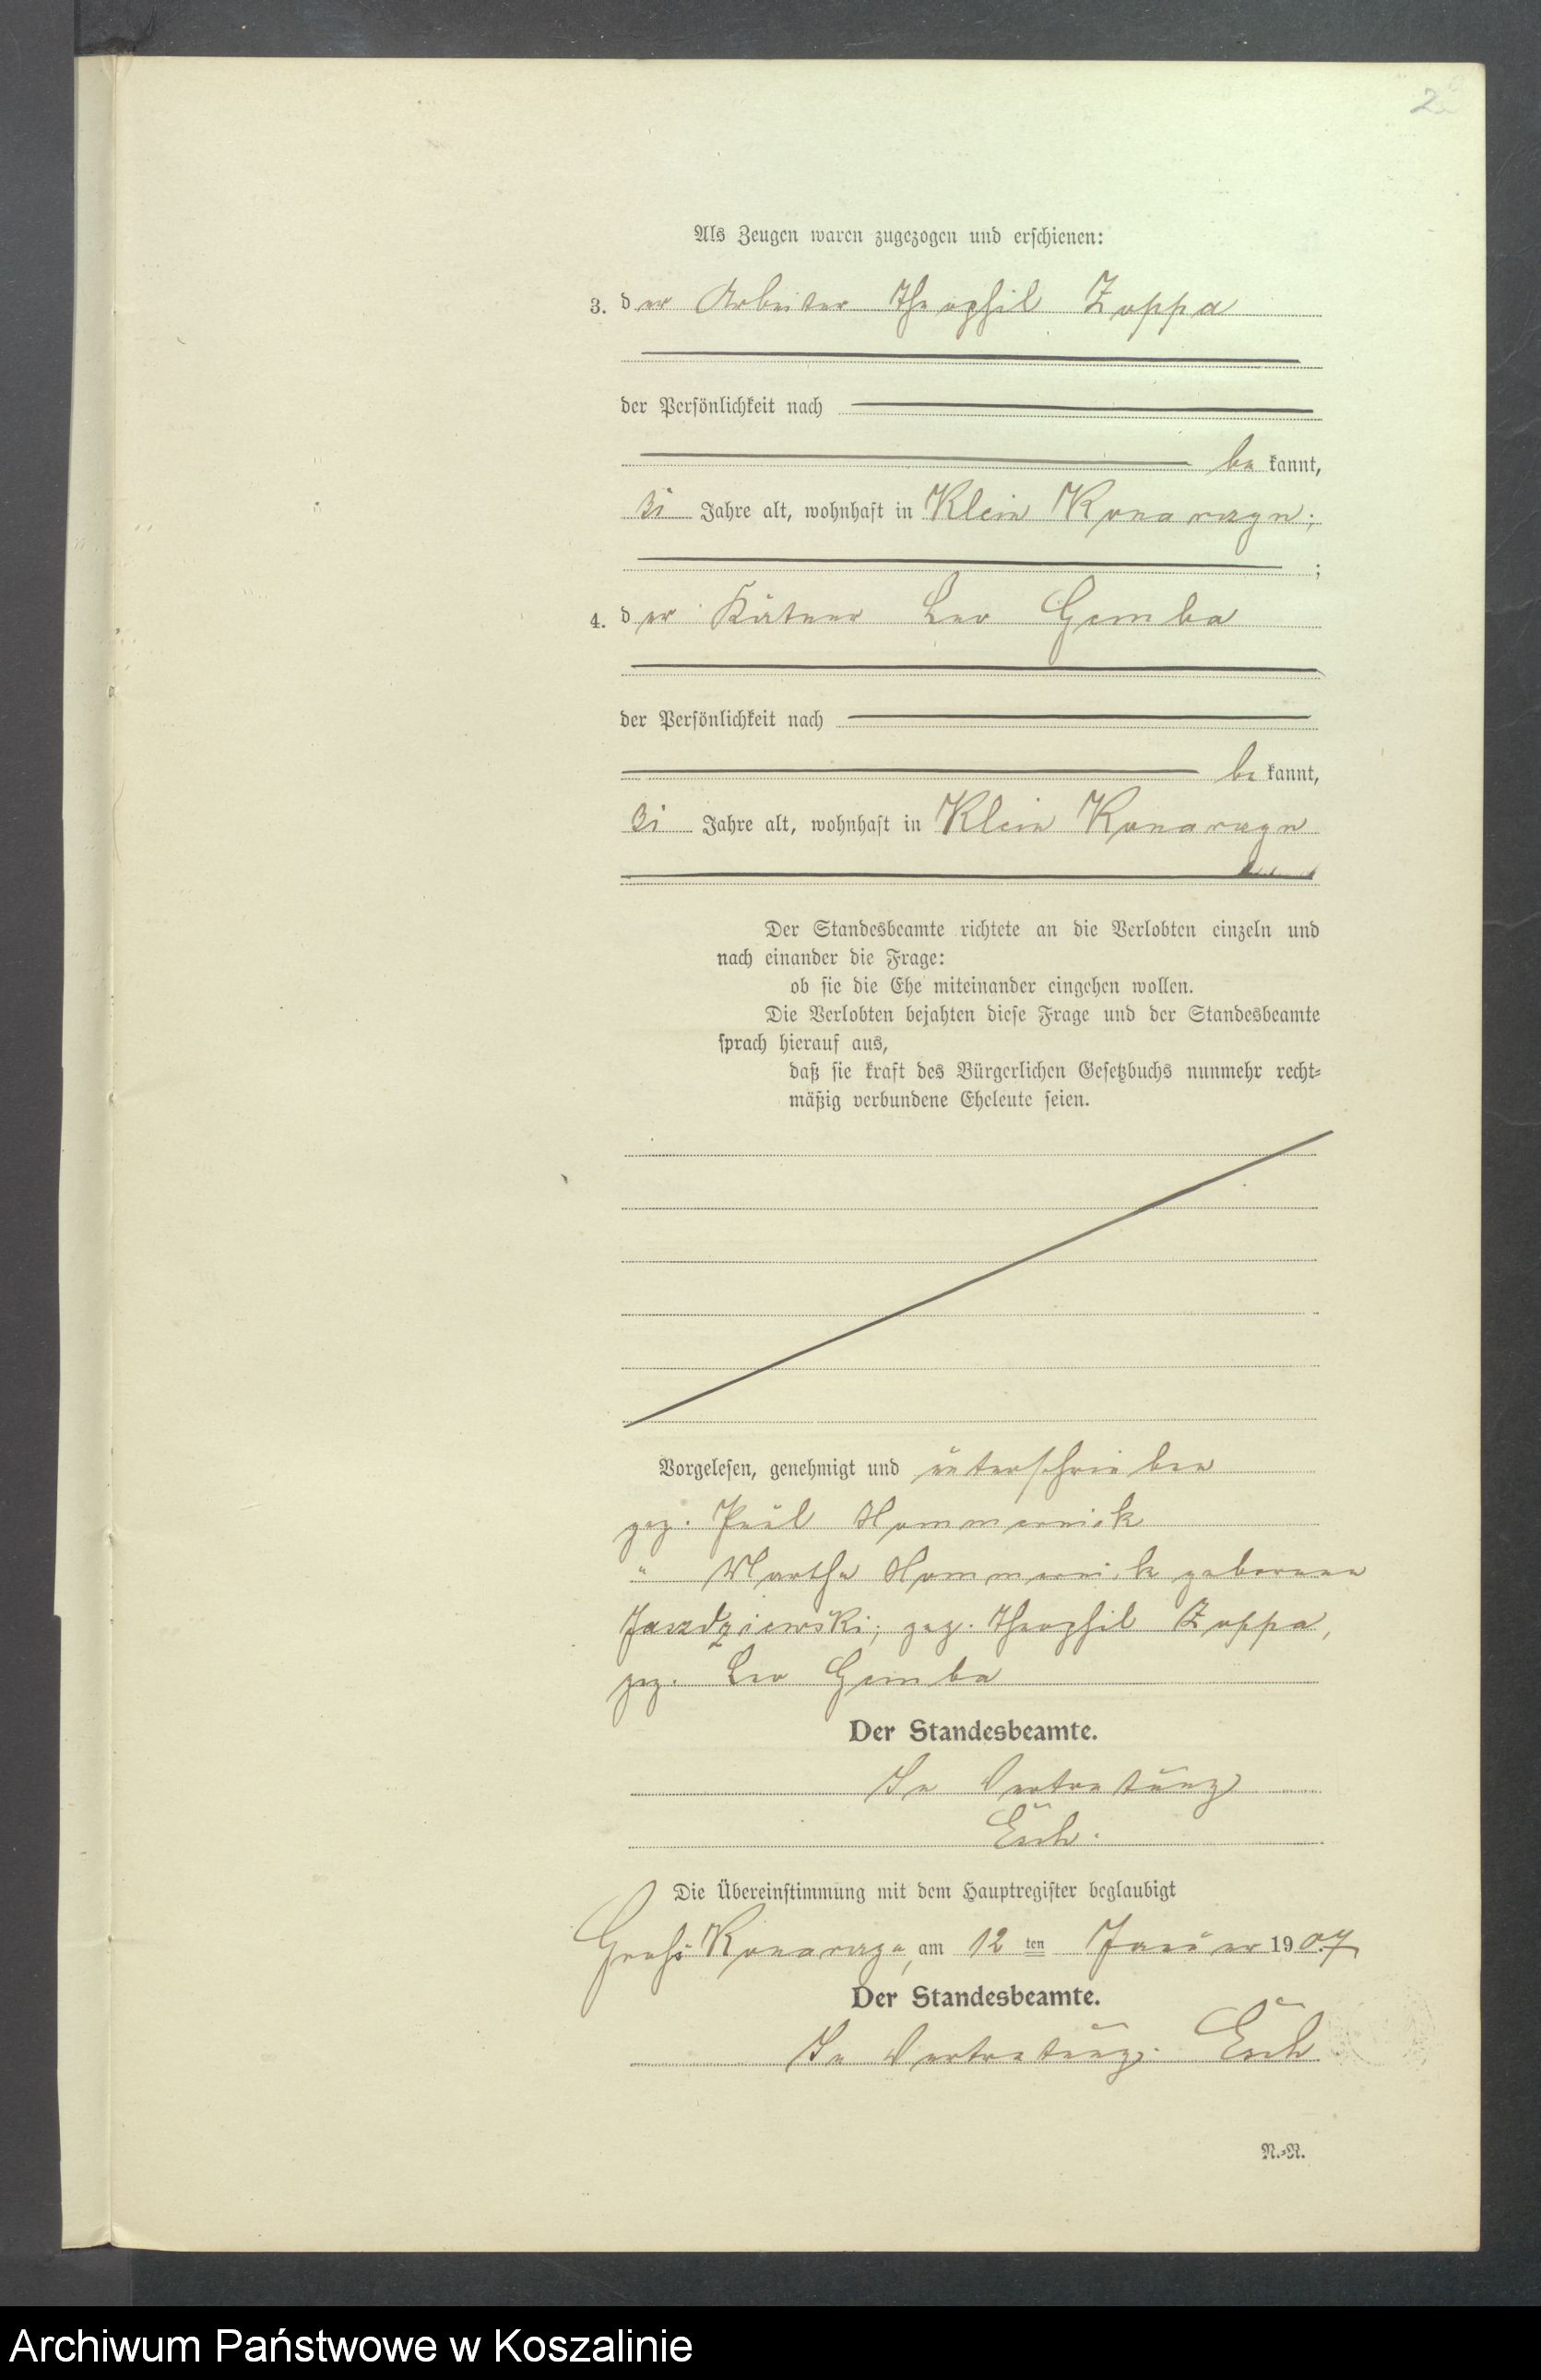 2
Als Zeugen waren zugezogen und erschienen:
3. der Arbeiter Theophil Zoppa
der Persönlichkeit nach
be kannt,
31 Jahre alt, wohnhaft in Klein Konarzyn;
;
4. der Kätner Leo Gemba
der Persönlichkeit nach
be kannt,
31 Jahre alt, wohnhaft in Klein Konarzyn
Der Standesbeamte richtete an die Verlobten einzeln und
nach einander die Frage:
ob sie die Ehe miteinander eingehen wollen.
Die Verlobten bejahten diese Frage und der Standesbeamte
sprach hierauf aus,
daß sie kraft des Bürgerlichen Gesetzbuchs nunmehr recht-
mäßig verbundene Eheleute seien.
Vorgelesen, genehmigt und unterschrieben
gez. Paul Hammernik
" Martha Hammernik geborene
Jazdziewski; gez. Theophil Zoppa,
gez. Leo Gemba
Der Standesbeamte.
In Vertretung
Die Übereinstimmung mit dem Hauptregister beglaubigt
Groß Konarzyn, am 12 ten Januar 1907
Der Standesbeamte.
In Vertretung.
N.-R.
Archiwum Państwowe w Koszalinie